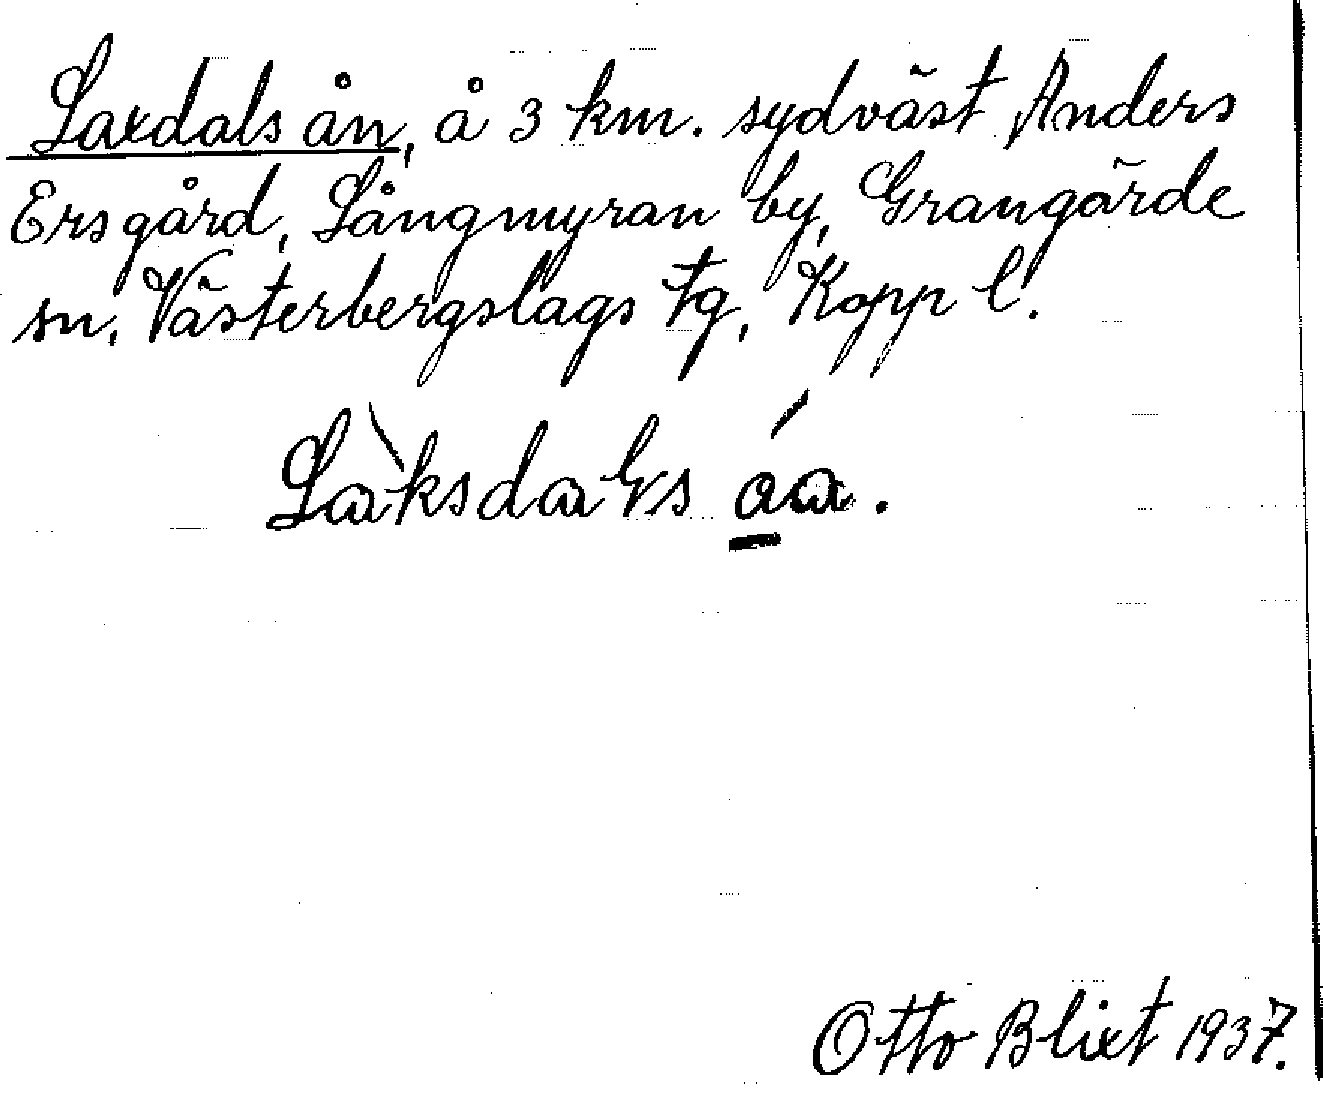 Laxdals ån, å 3 km. sydväst Anders
Ersgård, Långmyran by, Grangärde
sn. Västerbergslags tg, Kopp l.
Làksdals áa.
Otto Blixt 1937.